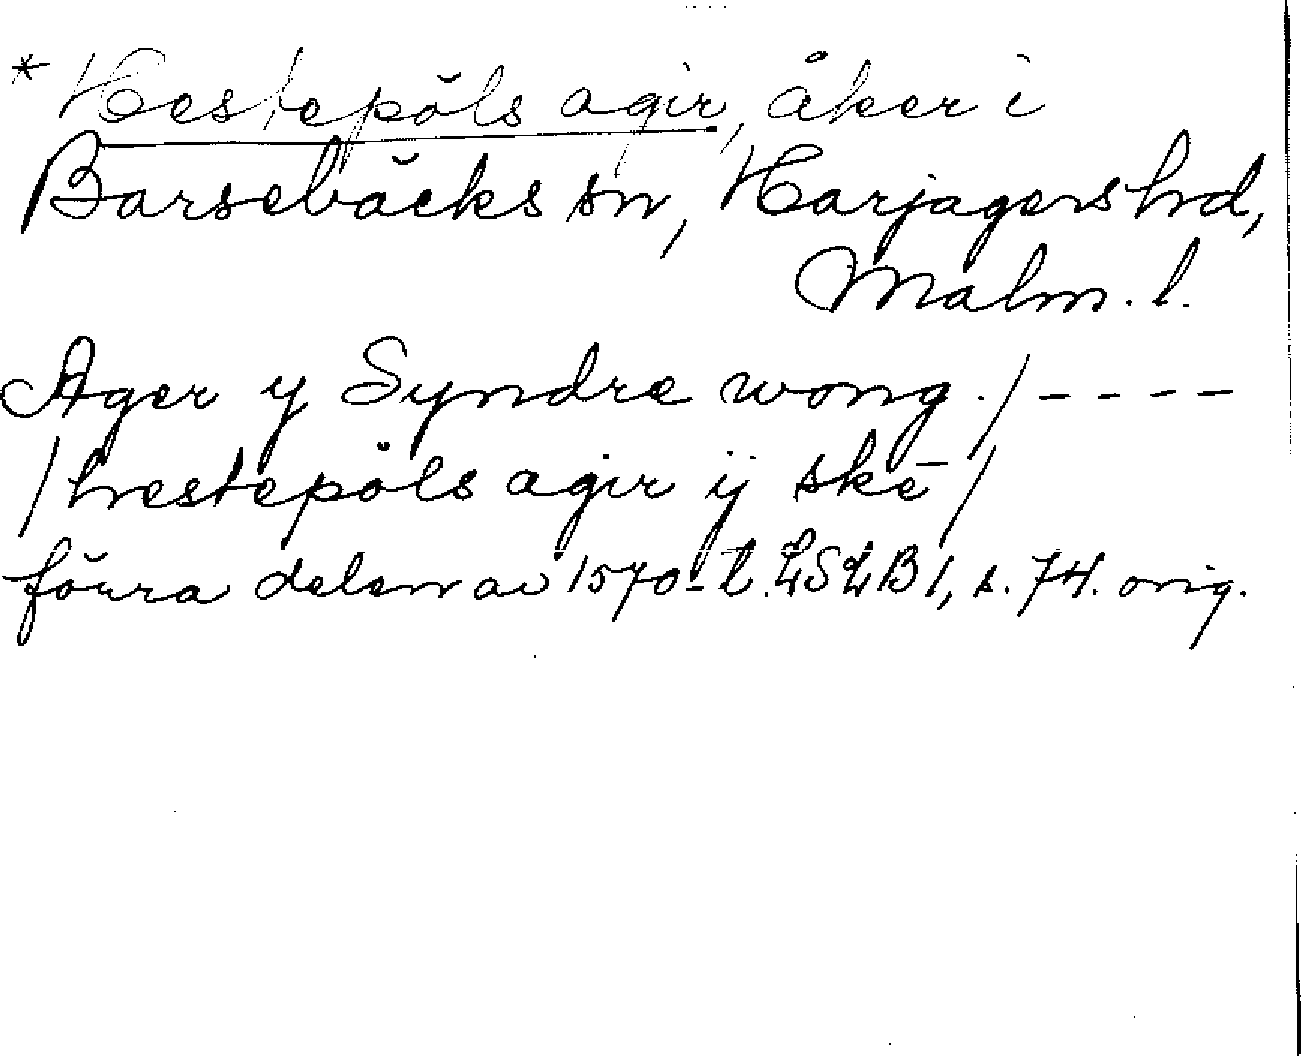 * Hestepöls agir, åker i
Barsebäcks sn, Harjagers hd,
Malm. l.
Ager y Syndre wong. / - - - -
/ hestepöls agir ij skē /
förra delen av 1570-t. LSLB 1, s. 74. orig.